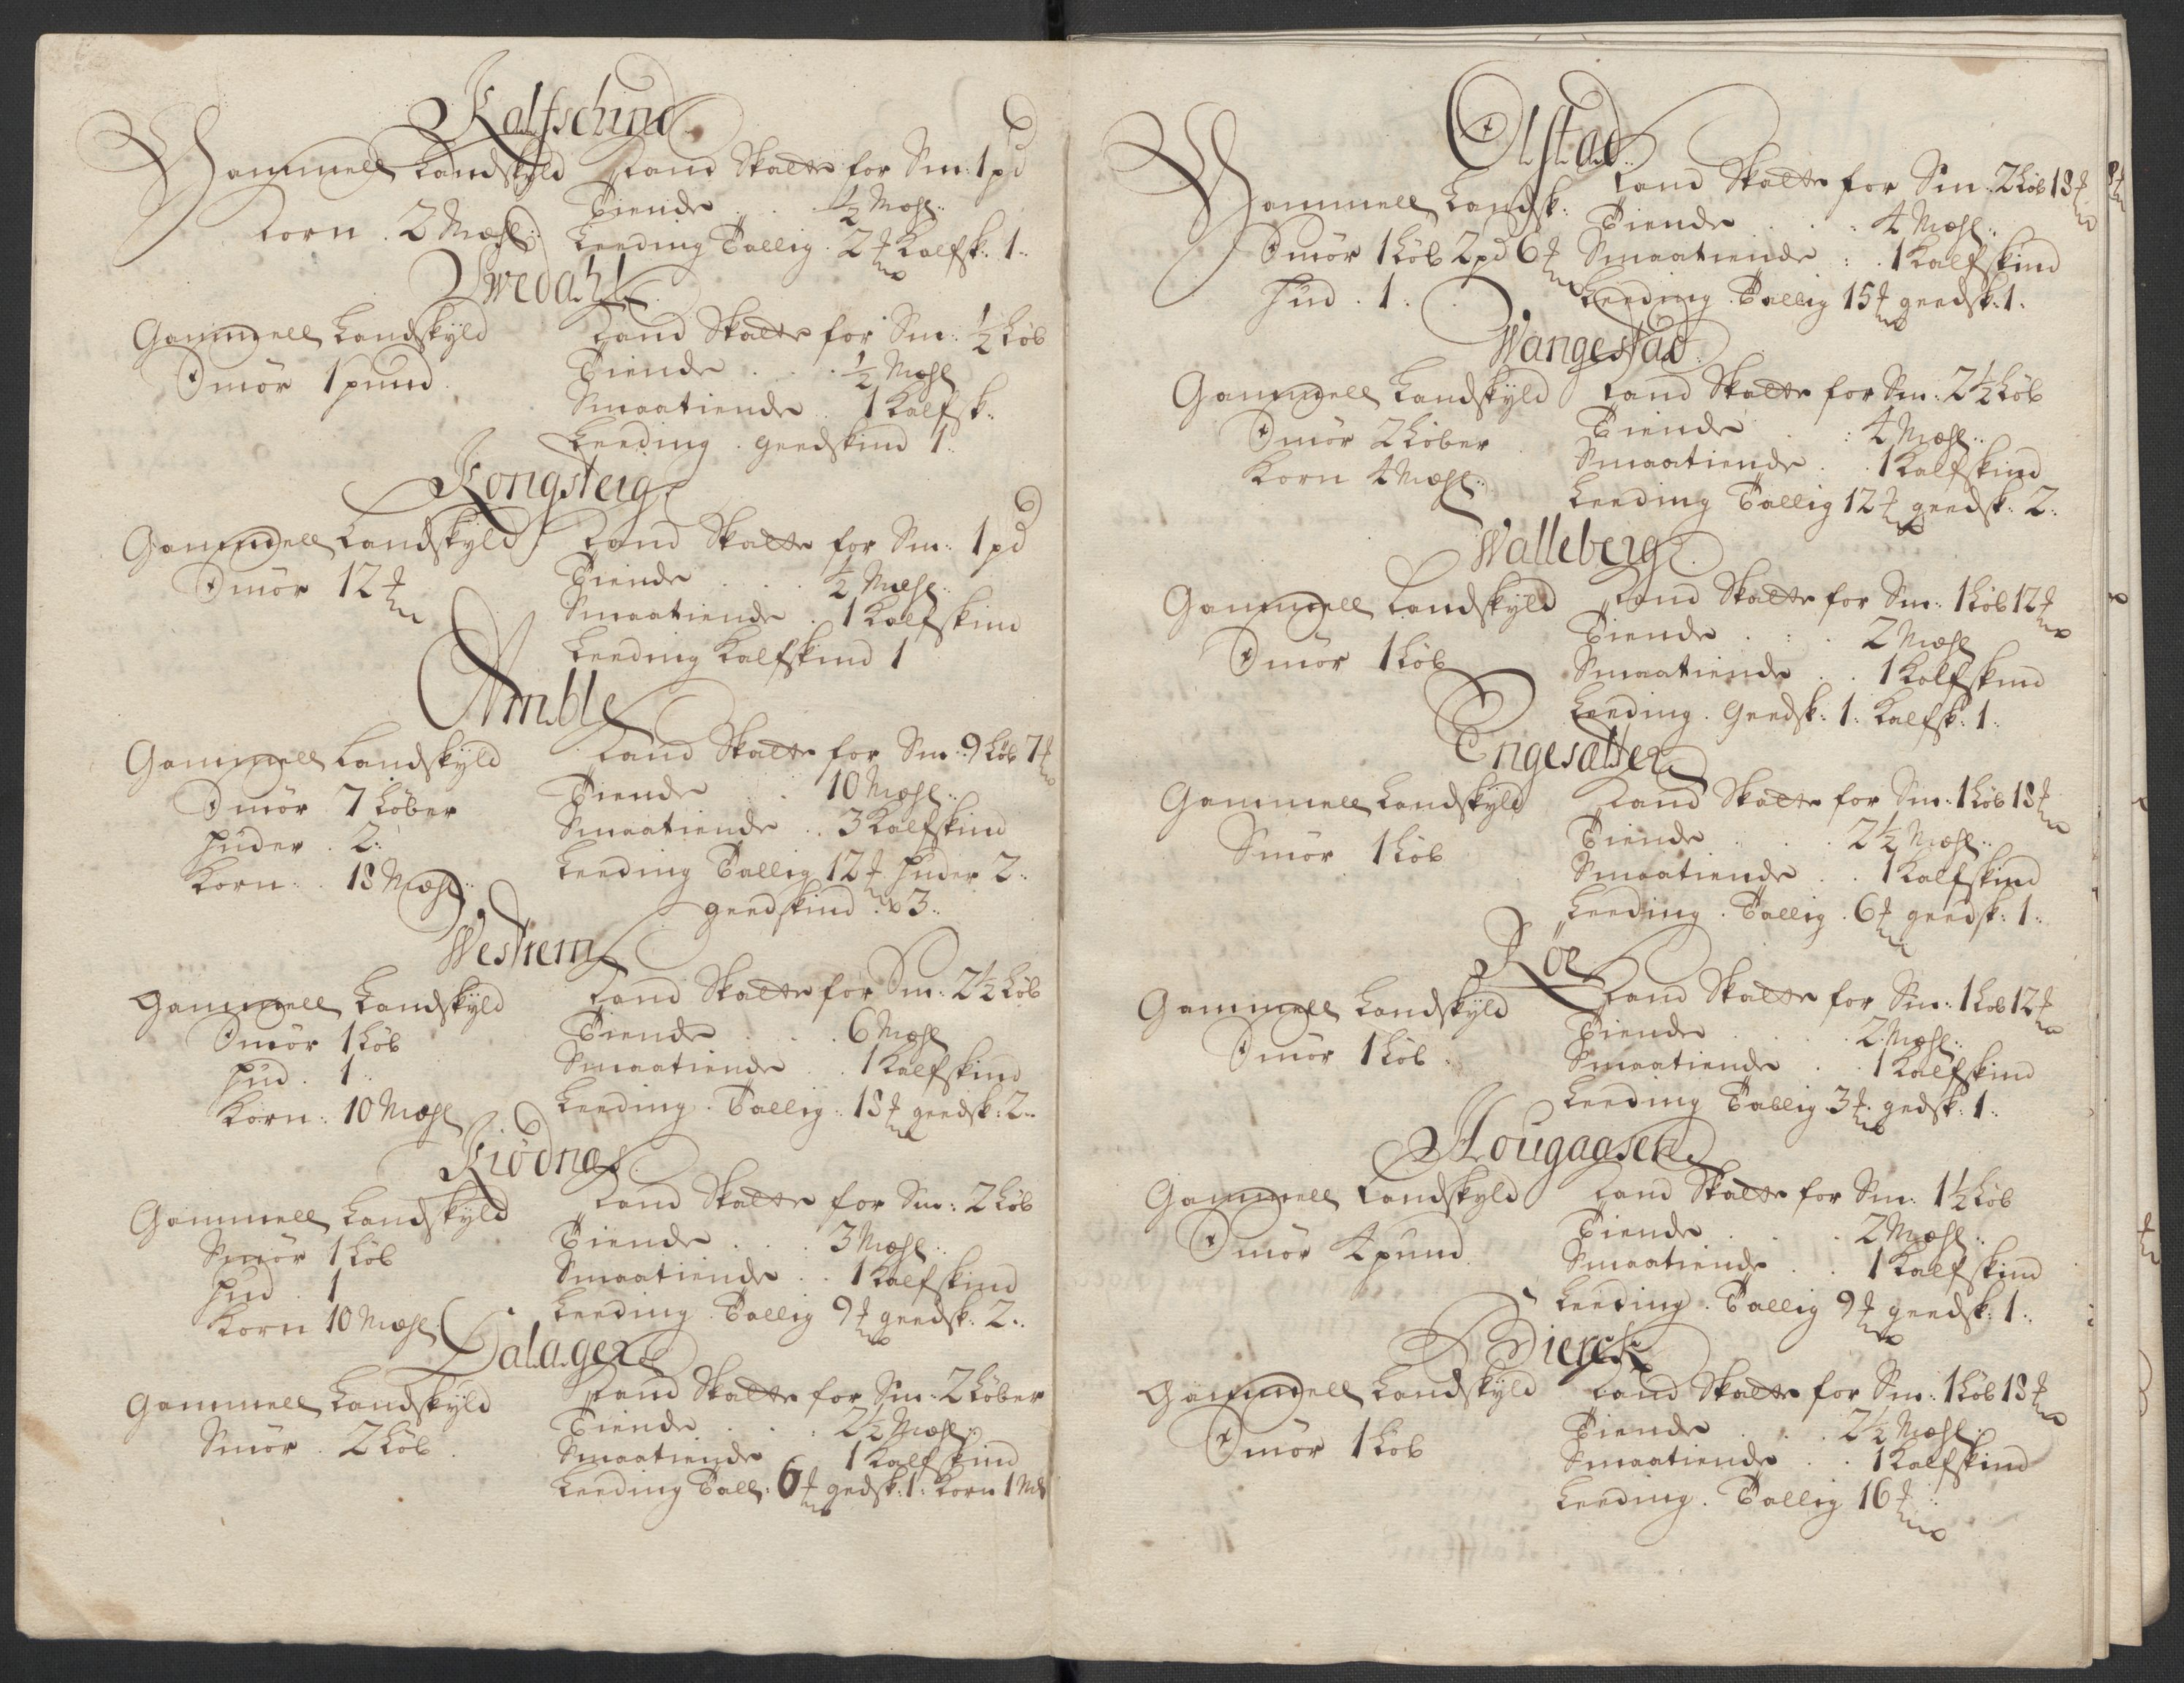 Kalfschind
Gammell Landskyld
Korn . 2 Mæhl:
Land Skatte for Sm: 1 pd
Tiende . . . ½ Mæhl:
Leeding Tallig . 2 ℔ Kalfsk: 1:
Swedahl
Gammell Landskyld
Smör 1 pund
Land Skatte for Sm: ½ Løb
Tiende . . . ½ Mæhl
Smaatiende . 1 Kalfsk:
Leeding . geedskind 1:
Kongsteig
Gammell Landskyld
Smör 12 ℔
Land Skatte for Sm: 1 pd
Tiende . . . ½ Mæhl:
Smaatiende . 1 Kalfskind
Leeding Kalfskind 1
Amble
Gammell Landskyld
Smör 7 Løber
Huder . 2:
Korn . 18 Mæhl:
Land Skatte for Sm: 9 Løb 7 ℔
Tiende . . 10 Mæhl:
Smaatiende . . 3 Kalfskind
Leeding Tallig 12 ℔ Huder 2:
geedskind . 3:
Westrem
Gammell Landskyld
Smör 1 Løb
Hud . 1:
Korn: 10 Mæhl
Land Skatte for Sm: 2½ Løb
Tiende . . . 6 Mæhl
Smaatiende . . 1 Kalfskind
Leeding . Tallig: 18 ℔ geedsk: 2:
Kiødnæs
Gammell Landskyld
Smör 1 Løb
Hud . 1
Korn 10 Mæhl:
Land Skatte for Sm: 2 Løb
Tiende . . . 3 Mæhl:
Smaatiende . . 1 Kalfskind
Leeding . Tallig 9 ℔ geedsk: 2:
Dalager
Gammell Landskyld
Smör . 2 Løb .
Land Skatte for Sm: 2 Løber
Tiende . . . 2½ Mæhl:
Smaatiende 1 Kalfskind
Leeding Tall: 6 ℔ gedsk: 1: Korn 1 Mæl
Olstad
Gammell Landsk:
Smör 1 Løb 2 pd 6 ℔
Hud . 1 .
Land Skatte for Sm: 2 Løb 18 ℔
Tiende . . . 4 Mæhl:
Smaatiende : . 1 Kalfskind
Leeding . Tallig 15 ℔ geedsk: 1.
Wangestad
Gammell Landskyld
Smör 2 Løber
Korn 4 Mæhl:
Land Skatte for Sm: 2½ Løb
Tiende . . : 4 Mæhl:
Smaatiende . . 1 Kalfskind
Leeding Tallig 12 ℔ geedsk: 2:
Walleberg
Gammell Landskyld
Smör 1 Løb
Land Skatte for Sm: 1 Løb 12 ℔
Tiende . : . 2 Mæhl
Smaatiende . . 1 Kalfskind
Leeding . Geedsk: 1: Kalfsk: 1:
Engesætter
Gammell Landskyld
Smör 1 Løb
Land Skatte for Sm: 1 Løb 18 ℔
Tiende . . . 2½ Mæhl:
Smaatiende . . 1 Kalfskind
Leeding . Tallig . 6 ℔ geedsk: 1:
Röe
Gammell Landskyld
Smör 1 Løb .
Land Skatte for Sm: 1 Løb 12 ℔
Tiende . . . 2 Mæhl:
Smaatiende . . 1 Kalfskind
Leeding Tallig 3 ℔. gedsk: 1:
Hougaasen
Gammell Landskyld
Smör 4 pund
Land Skatte for Sm: 1½ Løb
Tiende . . . 2 Mæhl:
Smaatiende . . 1 Kalfskind
Leeding . Tallig 9 ℔ geedsk: 1:
Bierck
Gammell Landskyld
Smör 1 Løb
Land Skatte for Sm: 1 Løb 18 ℔
Tiende . . . 2½ Mæhl:
Smaatiende . . 1 Kalfskind
Leeding . Tallig 16 ℔: